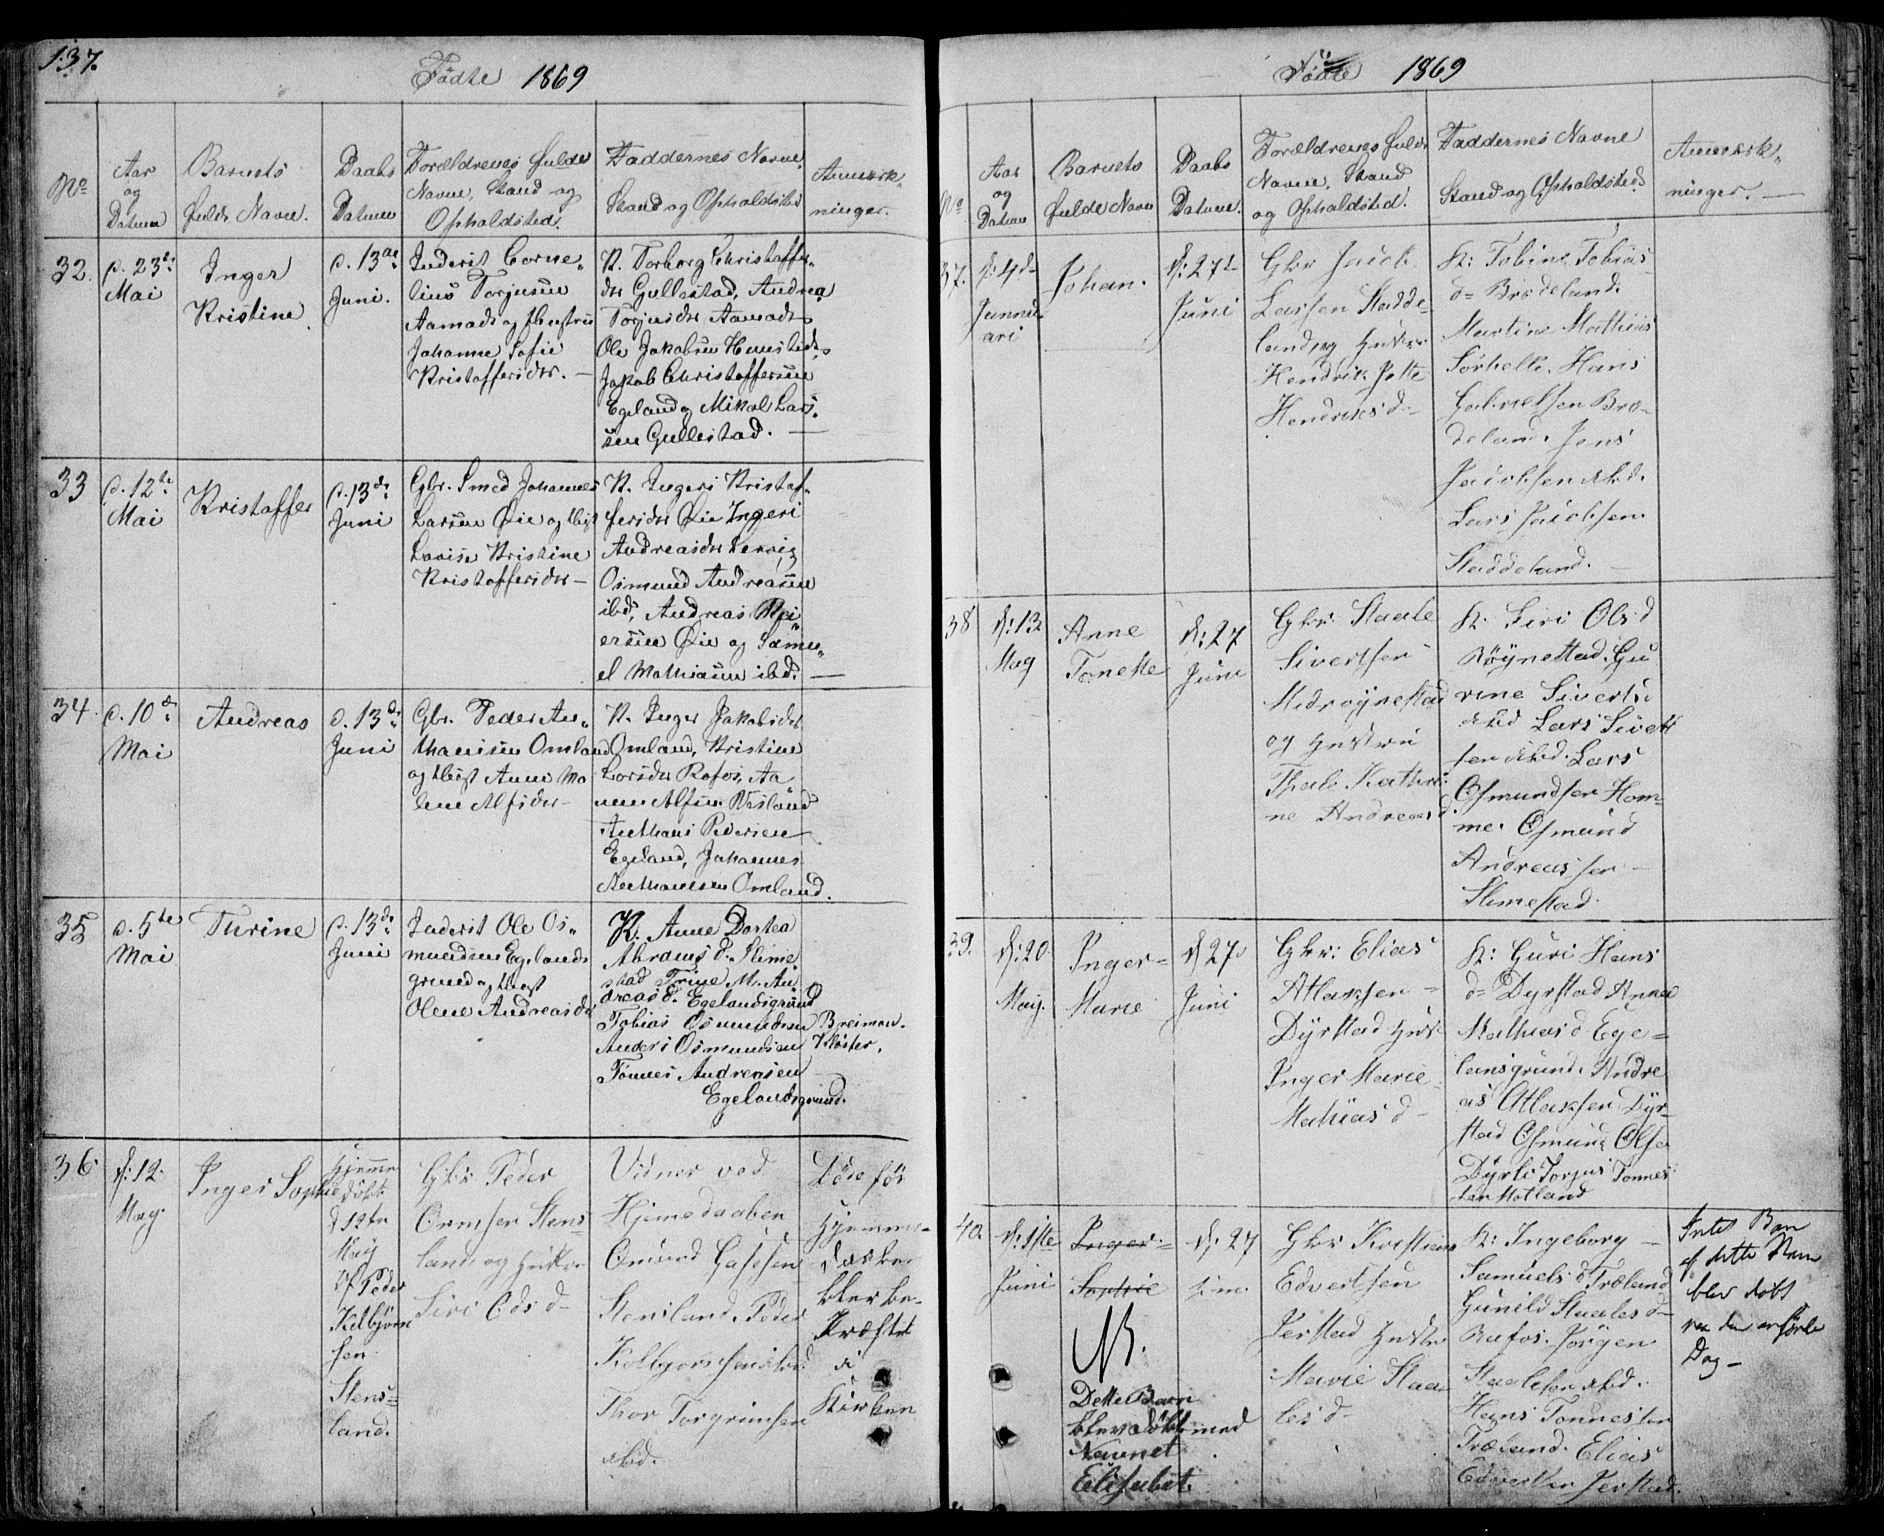 137.
Fødte 1869
No
Aar
og
Datum
Barnets
fulde Navn.
Daabs
Datum
Forældrenes fulde
Navne, Stand og
Opholdsted.
Faddernes Navne,
Stand og Opholdsted
Anmærk-
ninger.
32.
d. 23de
Mai
Inger
Kristine
d. 13de
Juni.
Inderst Corne-
lius Torjusen
Aamodt og Hustru
Johanne Sofie
Kristoffersdtr. —
K. Torborg Christoffers-
dtr Gullestad, Andrea
Torjusdtr Aamodt
Ole Jakobsen
Jakob Christoffersen
Egeland og Mikal Lars-
sen Gullestad. —
33
d. 12te
Mai
Kristoffer
d. 13de
Juni
Gbr. Smed Johannes
Larsen Øie og Hust
Lovise Kristine
Kristoffersdtr —
K. Ingeri Kristof-
fersdtr Øie Ingeri
Andreasdtr Lervig
Osmund Andreasen
ibd, Andreas Rei-
ersen Øie og Samu-
el Mathiasen ibd. —
34
d. 10de
Mai
Andreas
d. 13de
Juni
Gbr. Peder An-
thanisen Omland
og Hust Anne Ma
lene Alfsdtr —
K. Inger Jakobsdtr
Omland, Kristine
Larsdtr Rafos, Aa
nen Alfsen
Anthani Pedersen
Egeland, Johannes
Omland.
35
d. 5te
Mai
Turine
d. 13de
Juni
Inderst Ole Os-
mundsen Egelands
grund og Hust
Olene Andreasdtr
K. Anne Dortea
Abrams d. Slime
stad Trine M. An
dreas d. Egelandsgrund
Tobias Osmundsen Breiman.
Anders Osmundsen Kloster.
Tønnes Andreasen —
Egelandsgrund.
36
d: 12
May.
Inger Sophie
Hjemme
døbt
d 12te
May
af Peder
Kolbjørn
sen
Stens-
land.
Gbr Peder
Ormsen Stens
land og Hustru
Siri Ols d —
Vidner ved
Hjemedaaben
Omund
Stensland. Peder
Kolbjørnsen ibd
Thor Torgrimsen
ibd.
Døde før
Hjemme-
daaben
blev be-
kræftet
i
Kirken
Fødte 1869
No
Aar
og
Datum
Barnets
fulde Navn
Daabs
Datum.
Forældrenes fulde
Navne, Stand
og Opholdsted.
Faddernes Navne
Stand og Opholdsteds
Anmærk-
ninger. —
37.
d: 4de
Janu-
ari
Johan.
d: 27de
Juni
Gbr Jacob
Larsen Stadde-
land og Hustru
Hendrik Jette
Hendriks d —
K: Tobine Tobias
d= Brødeland.
Martine Mathias
Sørhelle. Hans
Gabrielsen Brø-
deland. Jens
Jacobsen ibd.
Lars Jacobsen
Staddeland. —
38
d: 13
May
Anne
Tonette
d: 27
Juni
Gbr: Staale
Sivertsen
Midrøynestad
og Hustru
Thale Kathri-
ne Andreas d
K: Siri Ols d
Røynestad. Gu
rine Siverts
ibd Lars Sivert
sen ibd. Lars
Osmundsen Hom-
me. Osmund
Andreassen —
Slimestad.
39.
d: 20
May.
Inger-
Marie
d 27
Juni
Gbr: Elias
Atlaksen —
Dyrstad Hust
Inger Marie
Mathias d —
K: Guri Hans
d= Dyrstad Anna
Mathias d Ege-
lansgrund. Andre
as Atlaksen Dyr-
stad Osmund Olse
Dyrli Torjus Tønnes
sen Motland
40.
d: 1ste
Juni
Inger-
Sophie
NB.
Dette Barn
blev døbt med
Navnet
Elisabet.
d: 27
Gbr Kristian
Edvertsen
Jerstad Hustru
Marie Staa
les d —
K: Ingeborg —
Samuels d Træland
Gunild Staales d —
Rafos. Jørgen
Staalesen ibd.
Hans Tønnessen
Træland. Elias
Edvertsen Jerstad.
Intet Barn
af dette Navn
blev døbt
paa den anførte
Dag —